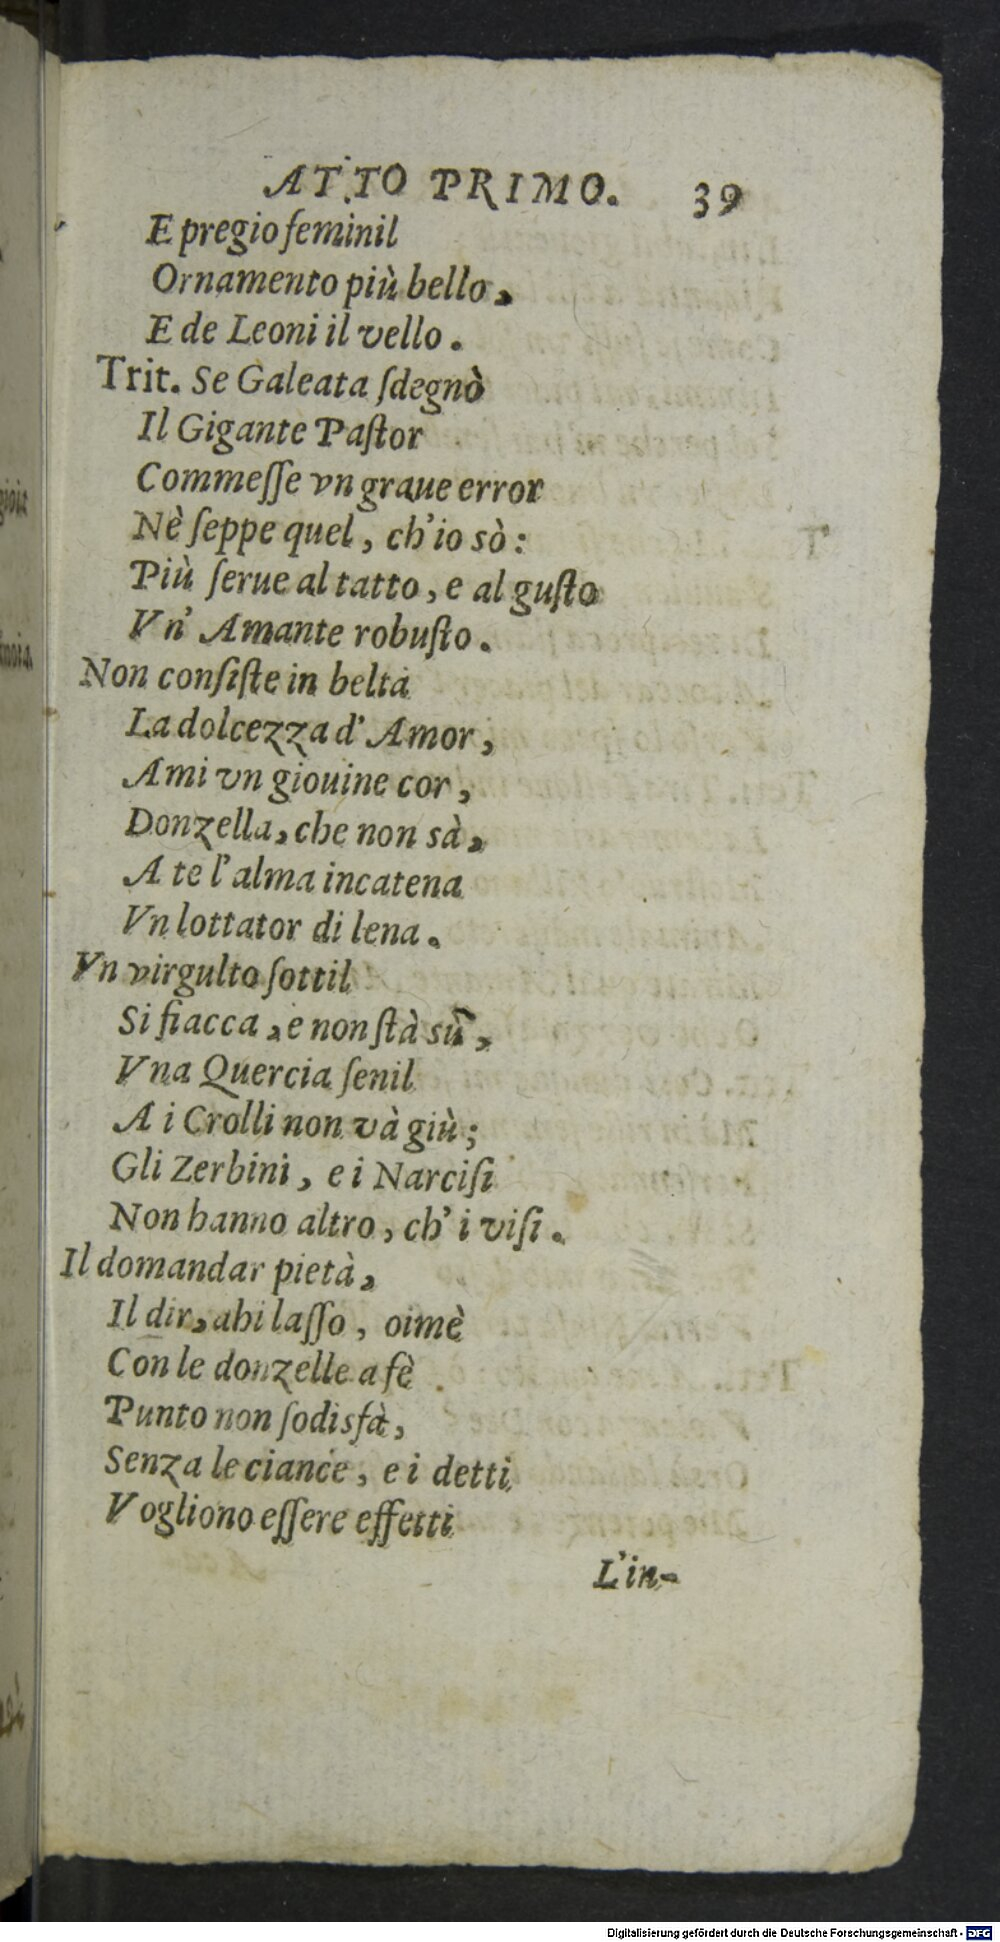 ATTO PRIMO. 39
E pregio feminil
Ornamento più bello,
E de Leoni il vello.
Trit. Se Galeata ſdegnò
Il Gigante Paſtor
Commeſſe vn graue error
Nè ſeppe quel, ch'io sò:
Più ſerue al tatto, e al guſto
Vn' Amante robuſto.
Non conſiſte in beltà
La dolcezza d'Amor,
Ami vn giouine cor,
Donzella, che non sà,
A te l'alma incatena
Vn lottator di lena.
Vn virgulto ſottil
Si fiacca, e non ſtà sù,
Vna Quercia ſenil
A i Crolli non và giù;
Gli Zerbini, e i Narciſi
Non hanno altro, ch'i viſi.
Il domandar pietà,
Il dir, ahi laſſo, oimè
Con le donzelle a fè
Punto non ſodisfà,
Senza le ciance, e i detti
Vogliono eſſere effetti
L'in-
Digitalisierung gefördert durch die Deutsche Forschungsgemeinschaft - DFG